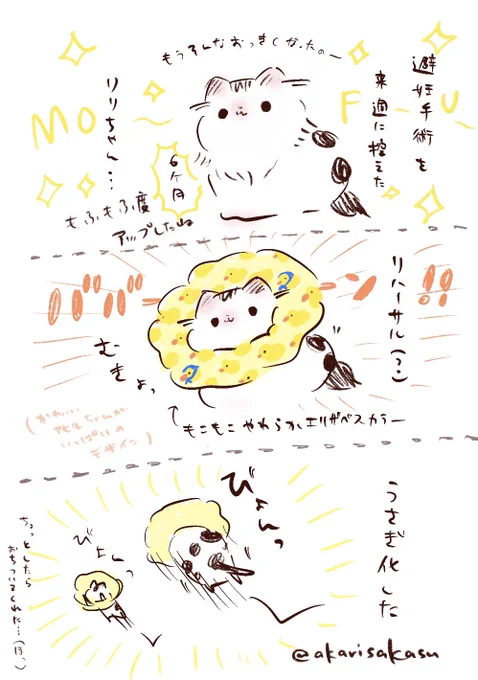 もうそんなおっきくなったの〜
避妊手術を
来週に控えた
リリちゃん…
MO
F〜U
6ヶ月
もふもふ度
アップしたね
リハーサル(?)
ババーーン!!
むきょっ
もこもこやわらかエリザベスカラー
(かわいい
いっぱいの
デザイン)
うさぎ化した
びょんっ
びょんっ
ちょっとしたら
おちついてくれた…(ほっ)
@akarisakasu